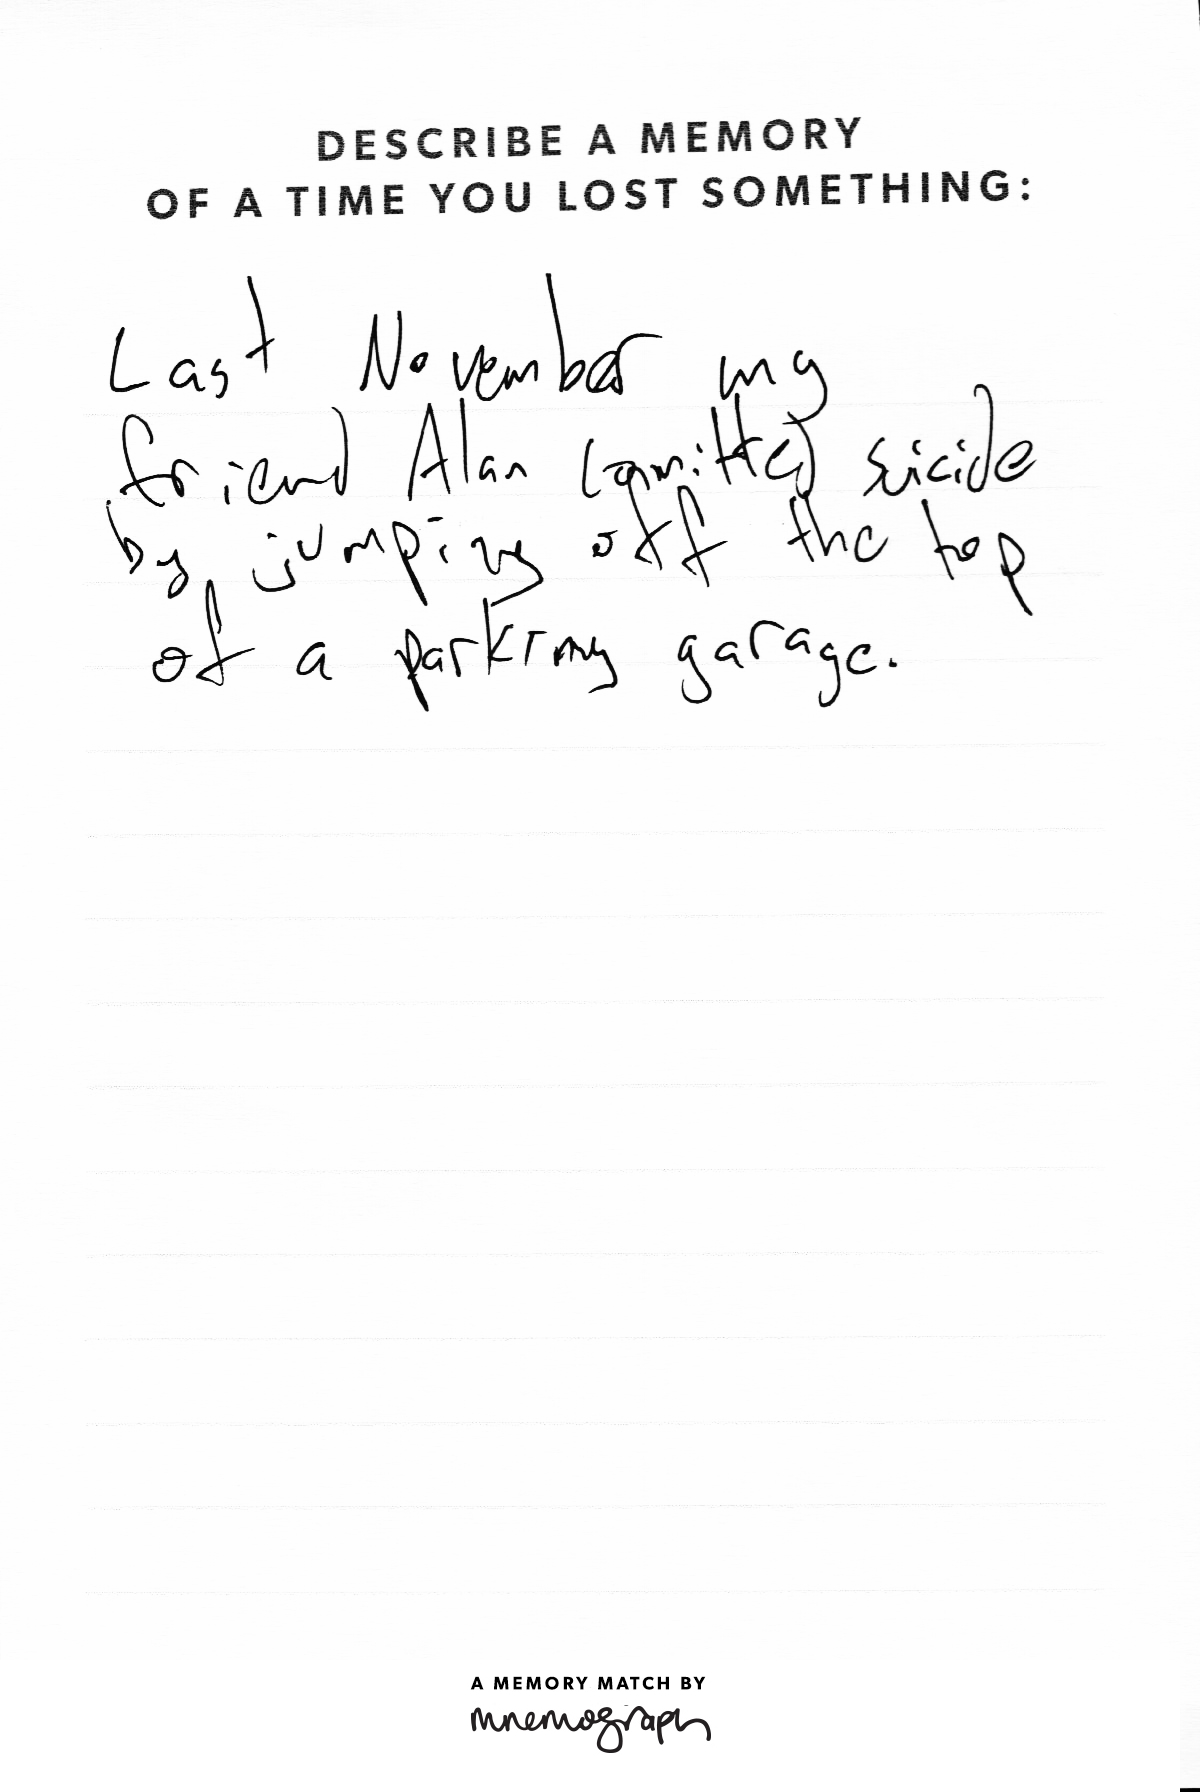 DESCRIBE A MEMORY
OF A TIME YOU LOST SOMETHING:
Last November my
friend Alan committed suicide
by jumping off the top
of a parking garage.
A MEMORY MATCH BY
mnemograph